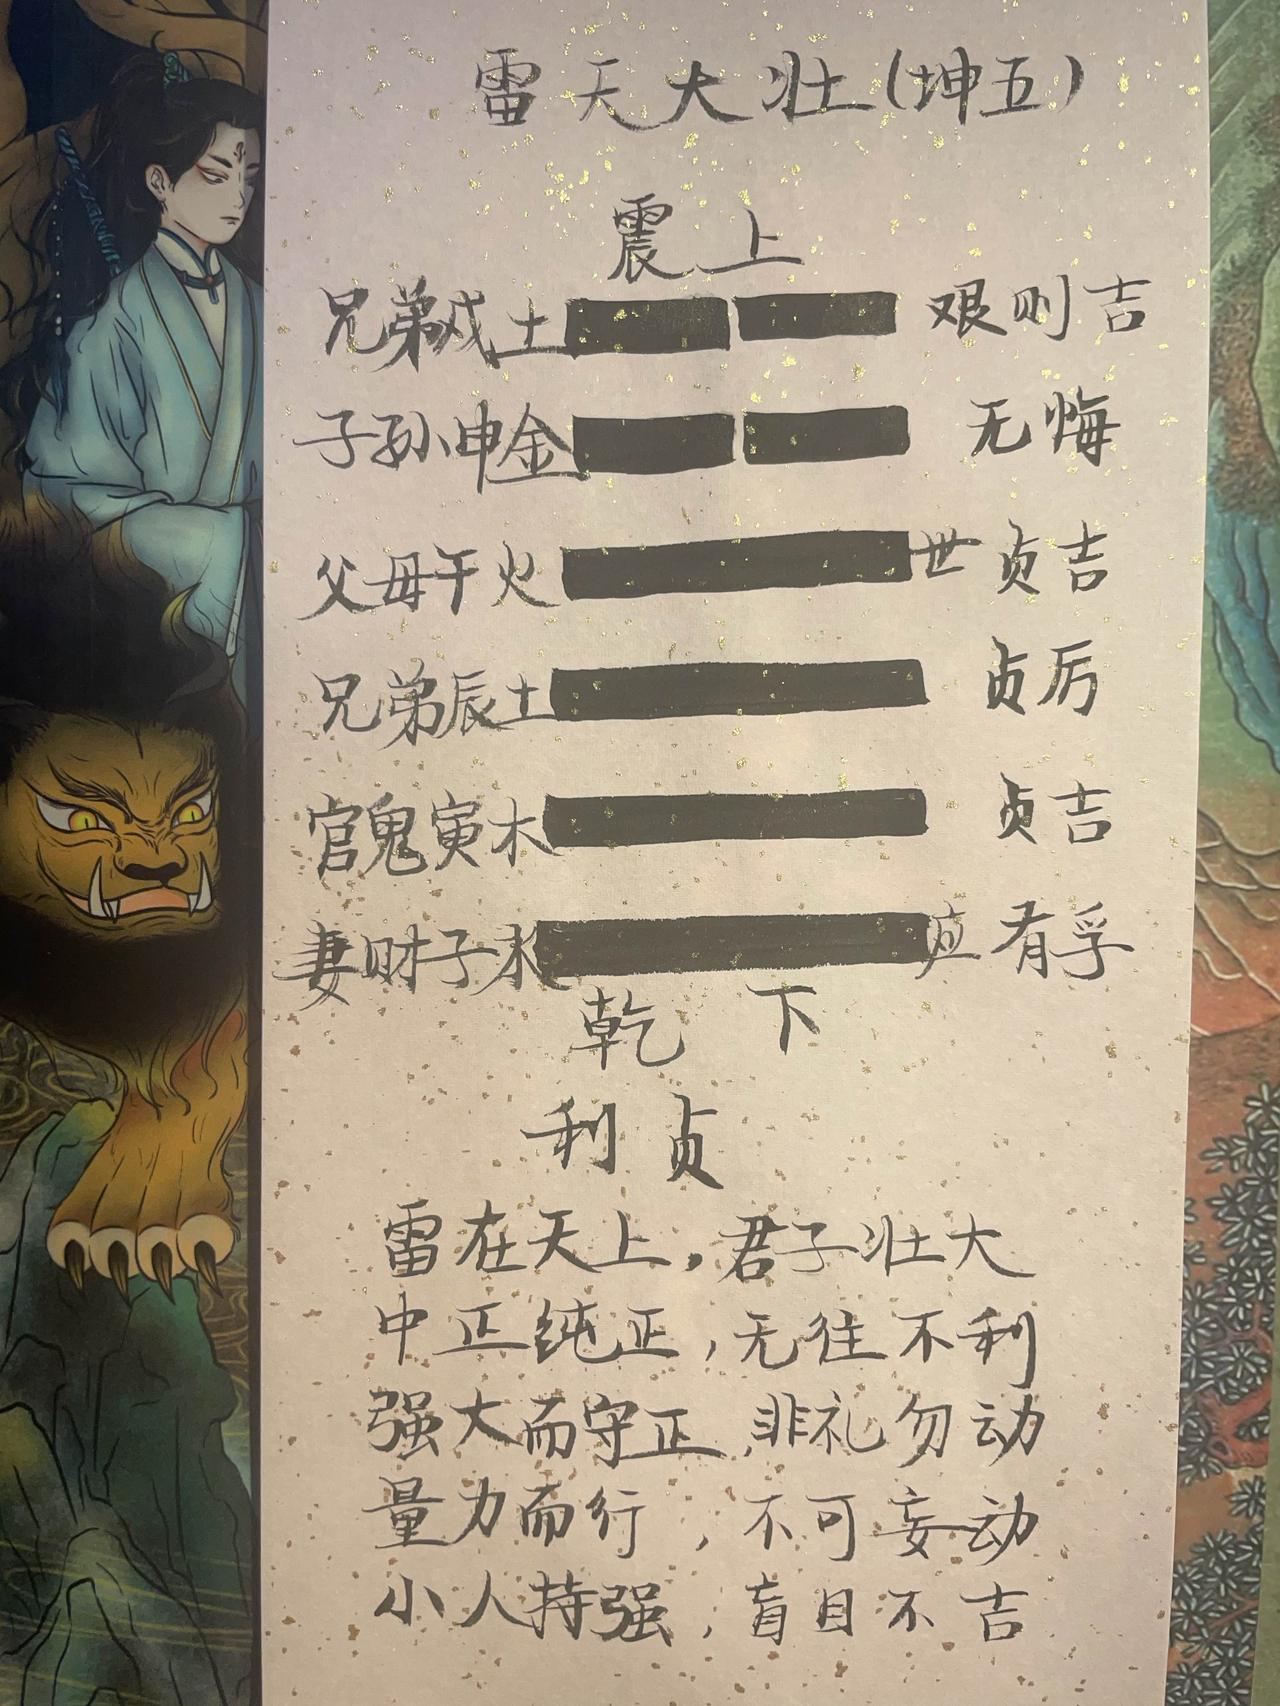 雷天大壮(坤五)
震上
兄弟戌土 艰则吉
子孙申金 无悔
父母午火 世 贞吉
兄弟辰土 贞厉
官鬼寅木 贞吉
妻财子水 应 有孚
乾 下
利贞
雷在天上,君子壮大
中正纯正,无往不利
强大而守正,非礼勿动
量力而行,不可妄动
小人持强,盲目不吉